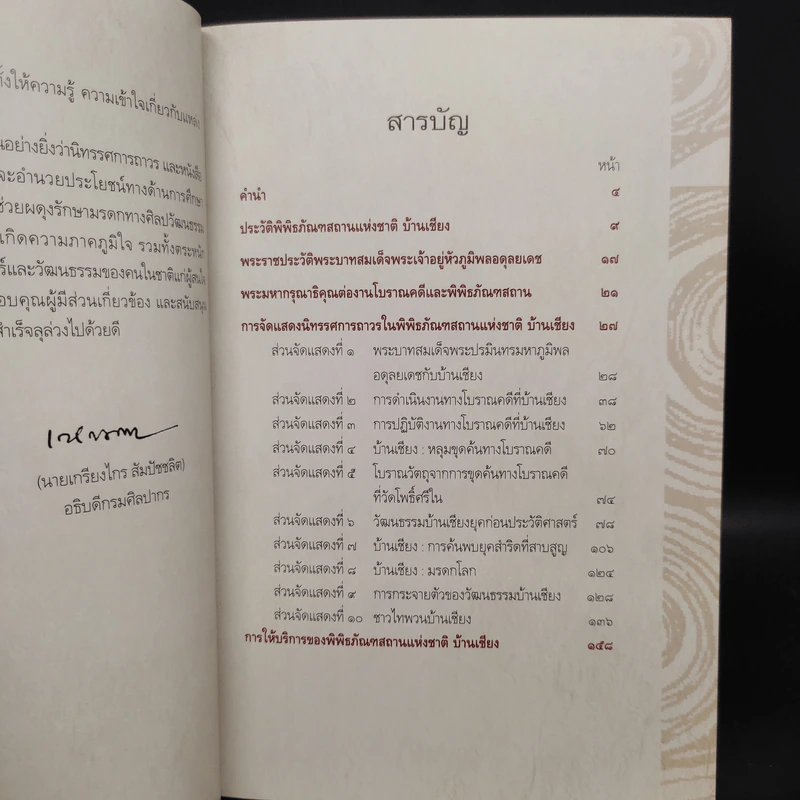 ทั้งให้ความรู้ ความเข้าใจเกี่ยวกับแหล่ง
นอย่างยิ่งว่านิทรรศการถาวร และหนังสือ
จะอำนวยประโยชน์ทางด้านการศึกษา
ช่วยผดุงรักษามรดกทางศิลปวัฒนธรรม
เกิดความภาคภูมิใจ รวมทั้งตระหนัก
ร์และวัฒนธรรมของคนในชาติแก่ผู้สนใจ
อบคุณผู้มีส่วนเกี่ยวข้อง และสนับสนุน
สำเร็จลุล่วงไปด้วยดี
(นายเกรียงไกร สัมปัชชลิต)
อธิบดีกรมศิลปากร
สารบัญ
หน้า
คำนำ ๕
ประวัติพิพิธภัณฑสถานแห่งชาติ บ้านเชียง ๙
พระราชประวัติพระบาทสมเด็จพระเจ้าอยู่หัวภูมิพลอดุลยเดช ๑๗
พระมหากรุณาธิคุณต่องานโบราณคดีและพิพิธภัณฑสถาน ๒๑
การจัดแสดงนิทรรศการถาวรในพิพิธภัณฑสถานแห่งชาติ บ้านเชียง ๒๗
ส่วนจัดแสดงที่ ๑ พระบาทสมเด็จพระปรมินทรมหาภูมิพล
อดุลยเดชกับบ้านเชียง ๒๘
ส่วนจัดแสดงที่ ๒ การดำเนินงานทางโบราณคดีที่บ้านเชียง ๓๘
ส่วนจัดแสดงที่ ๓ การปฏิบัติงานทางโบราณคดีที่บ้านเชียง ๖๒
ส่วนจัดแสดงที่ ๔ บ้านเชียง : หลุมขุดค้นทางโบราณคดี ๗๐
ส่วนจัดแสดงที่ ๕ โบราณวัตถุจากการขุดค้นทางโบราณคดี
ที่วัดโพธิ์ศรีใน ๗๔
ส่วนจัดแสดงที่ ๖ วัฒนธรรมบ้านเชียงยุคก่อนประวัติศาสตร์ ๗๘
ส่วนจัดแสดงที่ ๗ บ้านเชียง : การค้นพบยุคสำริดที่สาบสูญ ๑๐๖
ส่วนจัดแสดงที่ ๘ บ้านเชียง : มรดกโลก ๑๒๔
ส่วนจัดแสดงที่ ๙ การกระจายตัวของวัฒนธรรมบ้านเชียง ๑๒๘
ส่วนจัดแสดงที่ ๑๐ ชาวไทพวนบ้านเชียง ๑๓๖
การให้บริการของพิพิธภัณฑสถานแห่งชาติ บ้านเชียง ๑๕๘